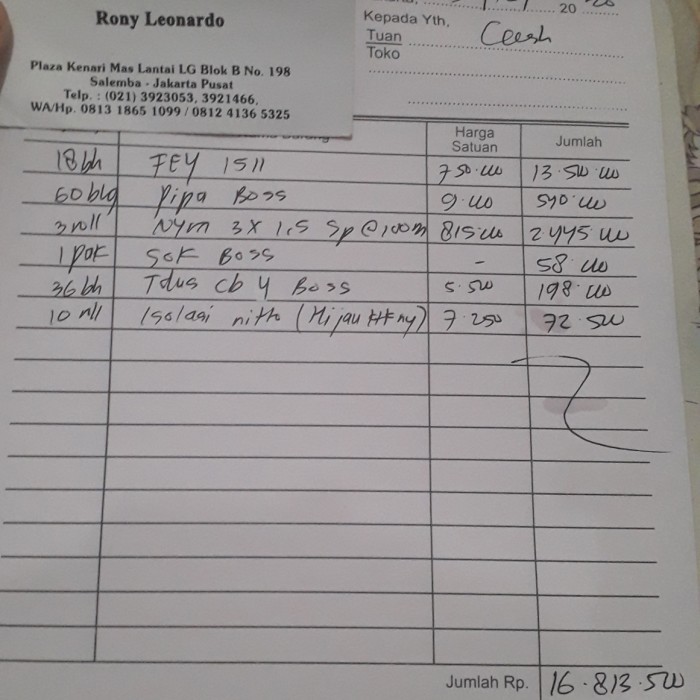 Rony Leonardo
Plaza Kenari Mas Lantai LG Blok B No. 198
Salemba - Jakarta Pusat
Telp. : (021) 3923053, 3921466,
WA/Hp. 0813 1865 1099 / 0812 4136 5325
20
Kepada Yth,
Tuan
Toko
Harga Satuan Jumlah
18 bh FEY 1511 750.000 13.500.000
60 btg Pipa Boss 9.000 540.000
3 roll Nym 3 x 1,5 Sp @ 100m 815.000 2.445.000
1 pak Sok Boss - 58.000
36 bh Tdus cb 4 Boss 5.500 198.000
10 roll Isolasi nitto (Hijau 7.250 72.500
Jumlah Rp. 16.813.500